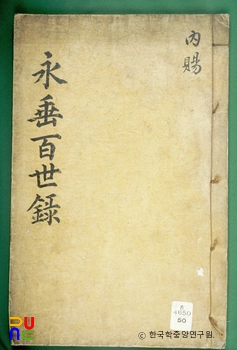 內賜
永垂百世錄
K
4650
50
© 한국학중앙연구원